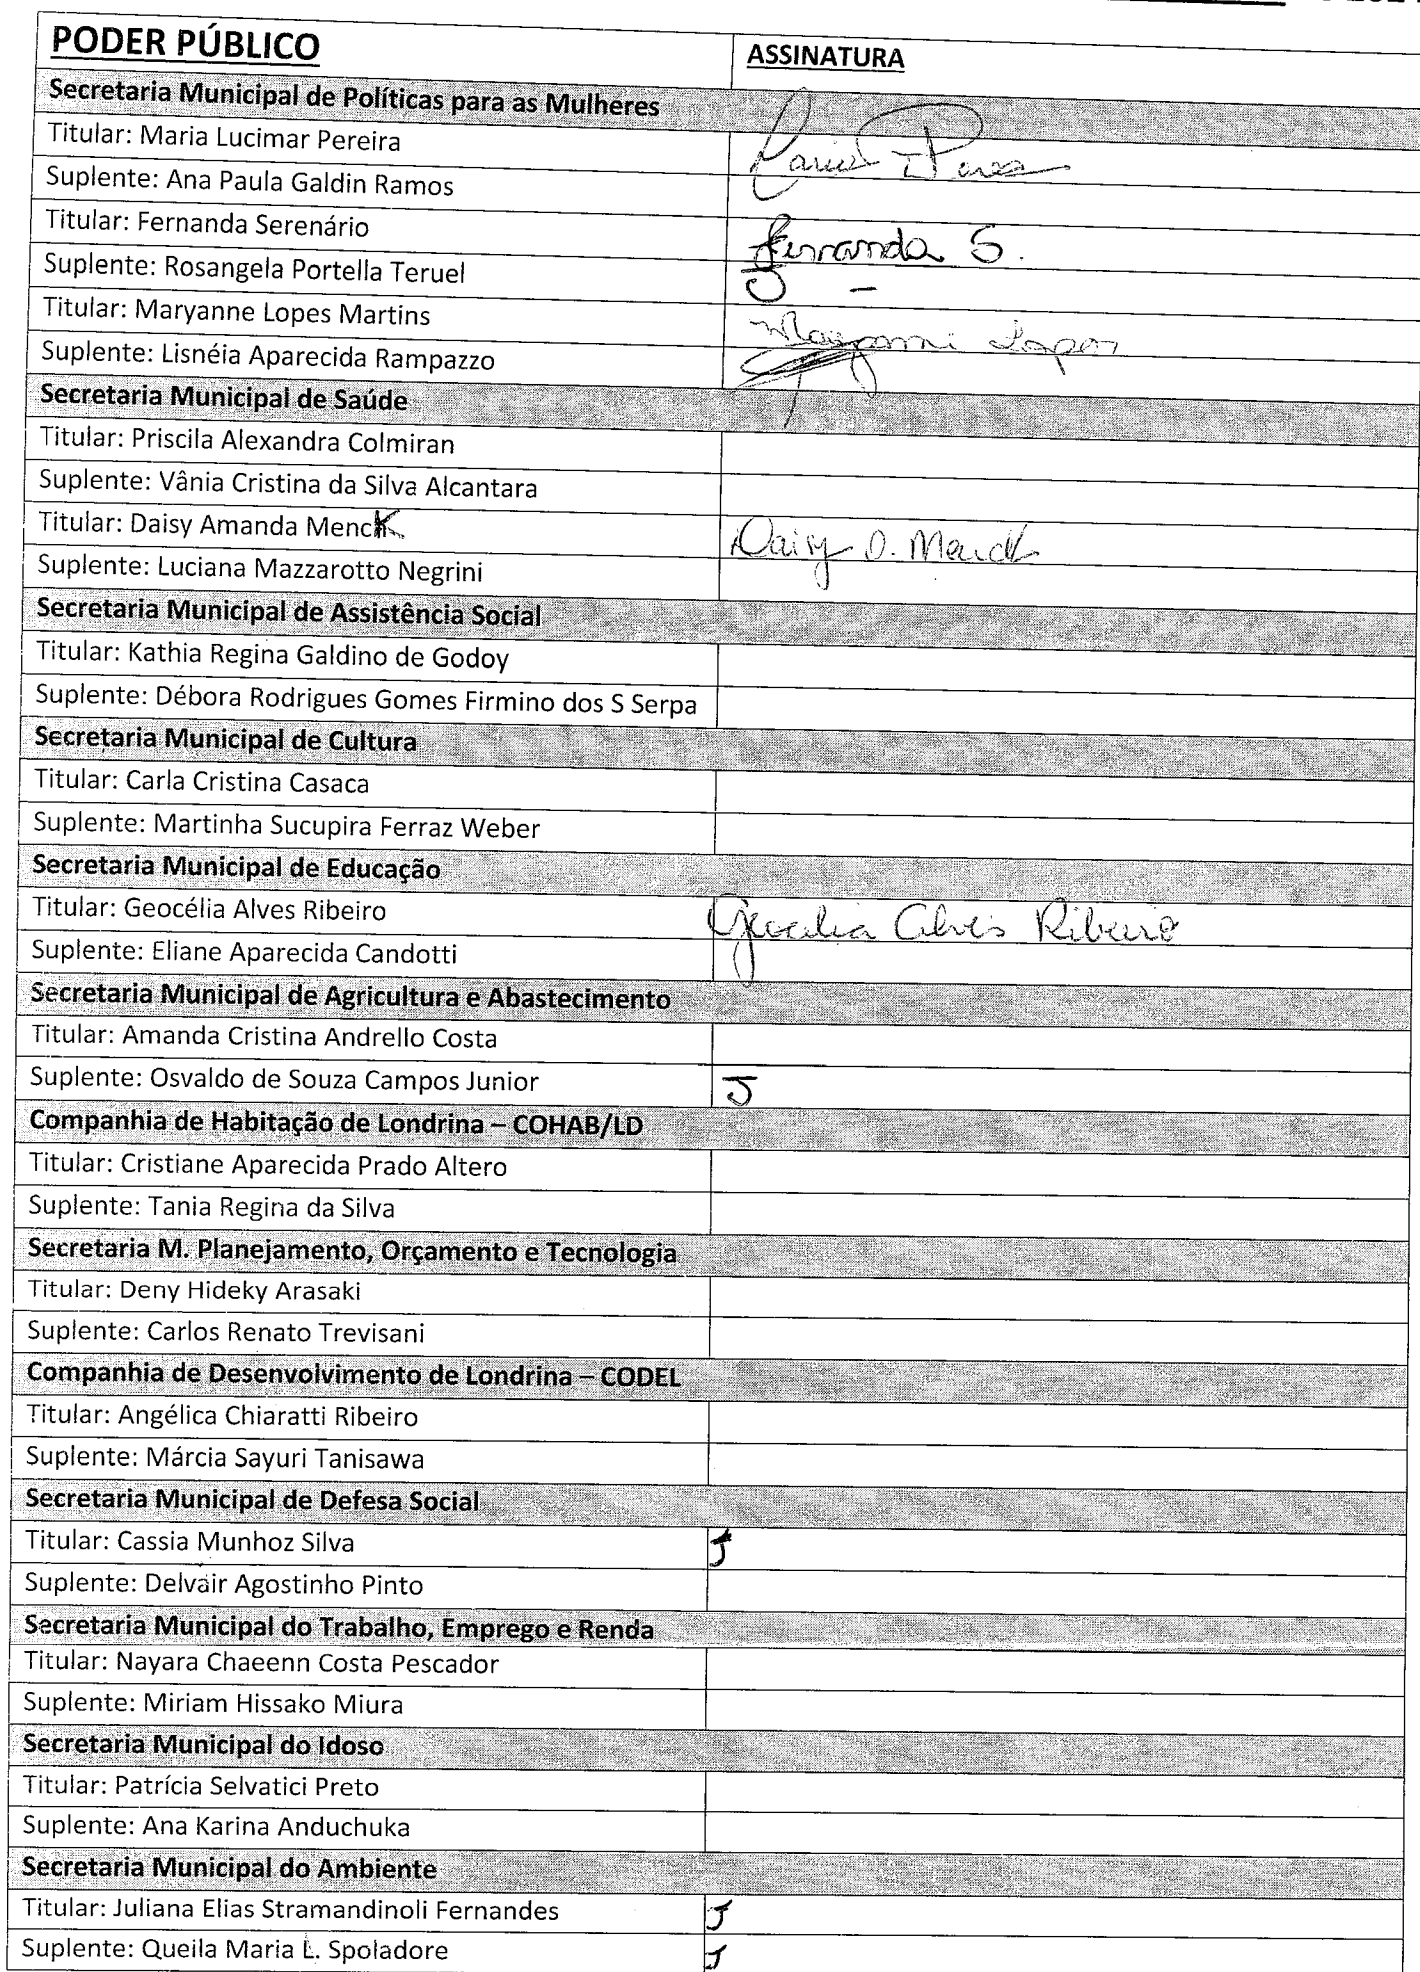 PODER PÚBLICO ASSINATURA
Secretaria Municipal de Políticas para as Mulheres
Titular: Maria Lucimar Pereira
Suplente: Ana Paula Galdin Ramos
Titular: Fernanda Serenário Fernanda S.
Suplente: Rosangela Portella Teruel J -
Titular: Maryanne Lopes Martins Maryanne Lopes
Suplente: Lisnéia Aparecida Rampazzo
Secretaria Municipal de Saúde
Titular: Priscila Alexandra Colmiran
Suplente: Vânia Cristina da Silva Alcantara
Titular: Daisy Amanda Menck Daisy A. Menck
Suplente: Luciana Mazzarotto Negrini
Secretaria Municipal de Assistência Social
Titular: Kathia Regina Galdino de Godoy
Suplente: Débora Rodrigues Gomes Firmino dos S Serpa
Secretaria Municipal de Cultura
Titular: Carla Cristina Casaca
Suplente: Martinha Sucupira Ferraz Weber
Secretaria Municipal de Educação
Titular: Geocélia Alves Ribeiro Geocélia Alves Ribeiro
Suplente: Eliane Aparecida Candotti
Secretaria Municipal de Agricultura e Abastecimento
Titular: Amanda Cristina Andrello Costa
Suplente: Osvaldo de Souza Campos Junior J
Companhia de Habitação de Londrina – COHAB/LD
Titular: Cristiane Aparecida Prado Altero
Suplente: Tania Regina da Silva
Secretaria M. Planejamento, Orçamento e Tecnologia
Titular: Deny Hideky Arasaki
Suplente: Carlos Renato Trevisani
Companhia de Desenvolvimento de Londrina – CODEL
Titular: Angélica Chiaratti Ribeiro
Suplente: Márcia Sayuri Tanisawa
Secretaria Municipal de Defesa Social
Titular: Cassia Munhoz Silva J
Suplente: Delvair Agostinho Pinto
Secretaria Municipal do Trabalho, Emprego e Renda
Titular: Nayara Chaeenn Costa Pescador
Suplente: Miriam Hissako Miura
Secretaria Municipal do Idoso
Titular: Patrícia Selvatici Preto
Suplente: Ana Karina Anduchuka
Secretaria Municipal do Ambiente
Titular: Juliana Elias Stramandinoli Fernandes J
Suplente: Queila Maria L. Spoladore J